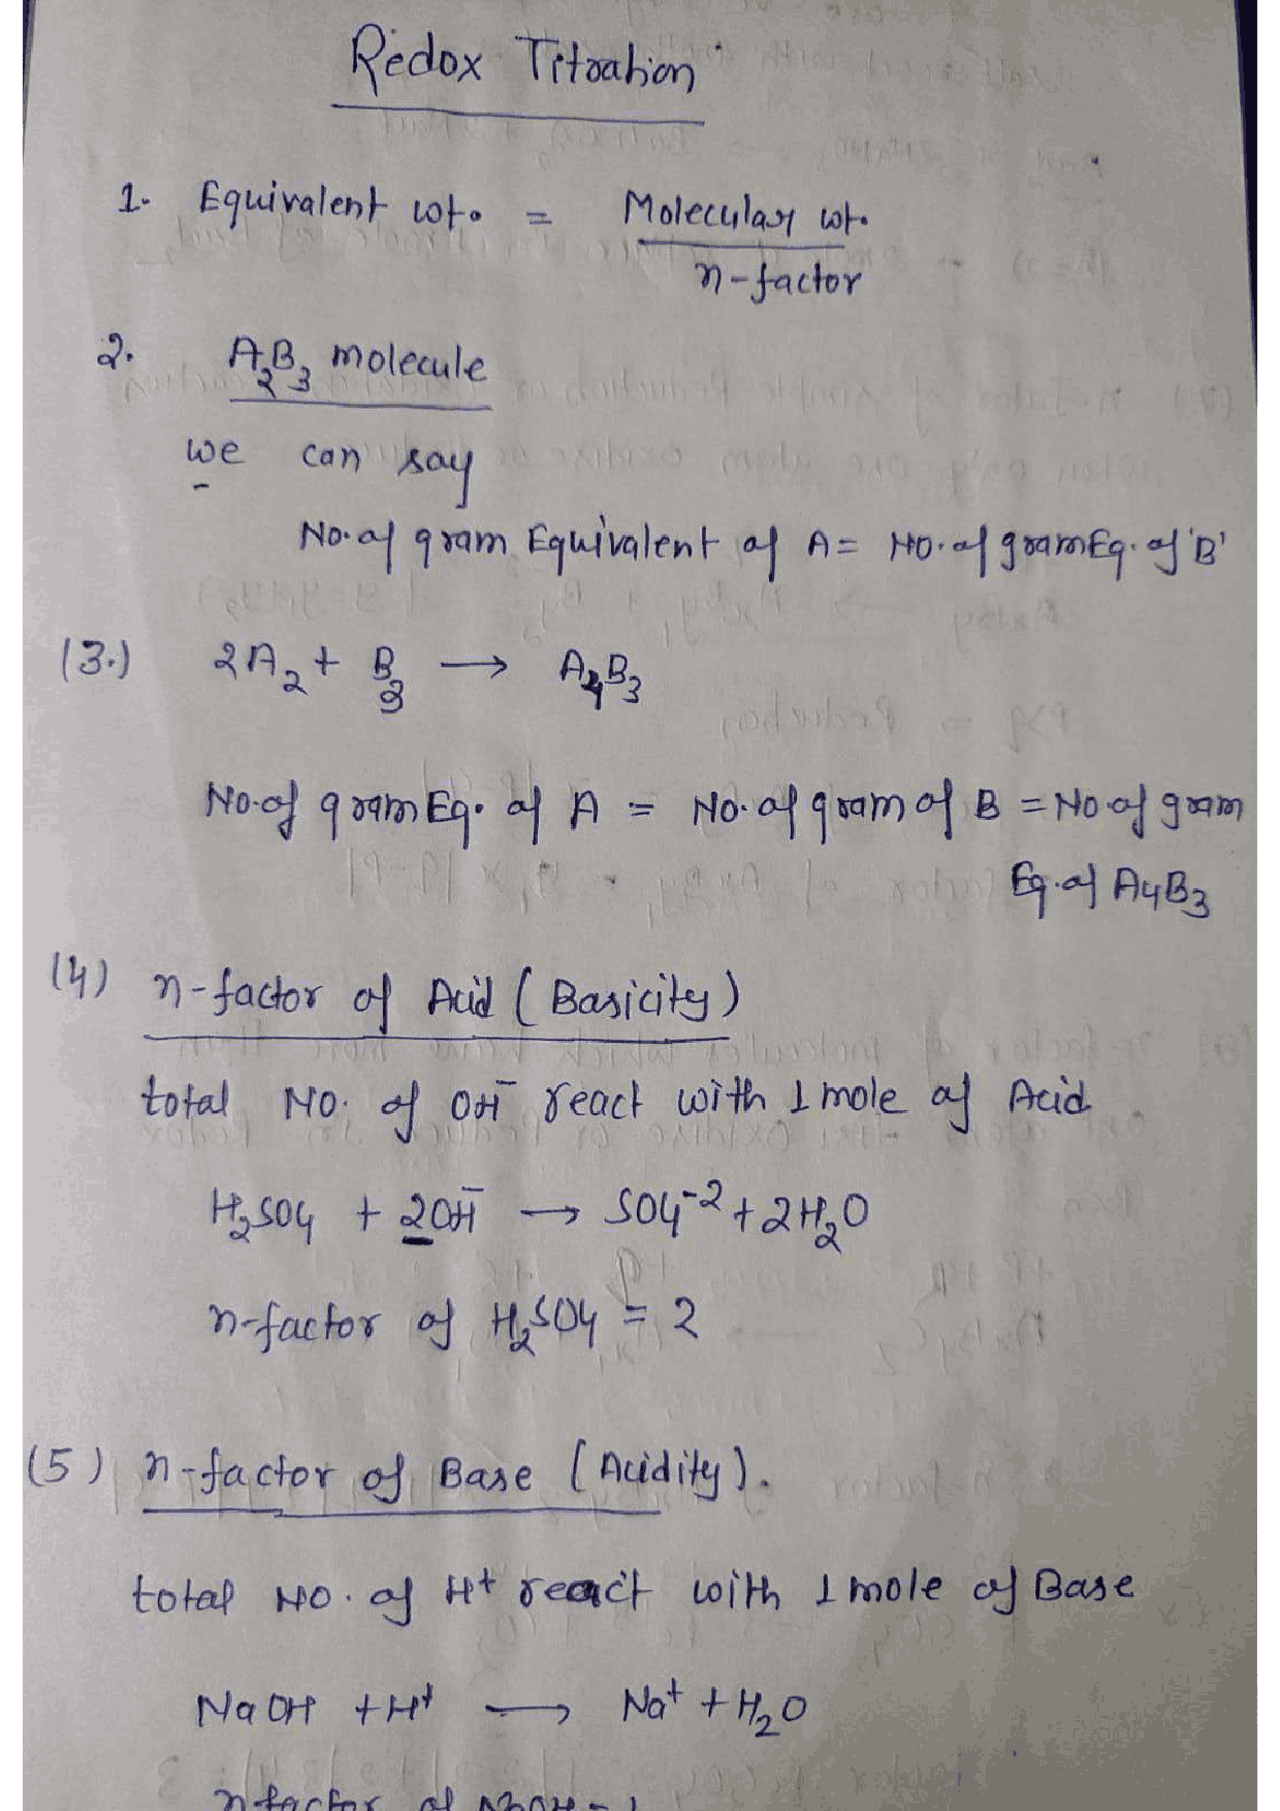 Redox Titration
1. Equivalent wt. = Molecular wt.
n-factor
2. A₂B₃ molecule
we can say
No. of gram Equivalent of A = No. of gram Eq. of 'B'
(3.) 2A₂ + B₃ → A₄B₃
No. of gram Eq. of A = No. of gram of B = No of gram
Eq. of A₄B₃
(4) n-factor of Acid (Basicity)
total No. of OH⁻ react with 1 mole of Acid
H₂SO₄ + 2OH⁻ → SO₄⁻² + 2H₂O
n-factor of H₂SO₄ = 2
(5) n-factor of Base (Acidity).
total No. of H⁺ react with 1 mole of Base
NaOH + H⁺ → Na⁺ + H₂O
n factor of NaOH = 1